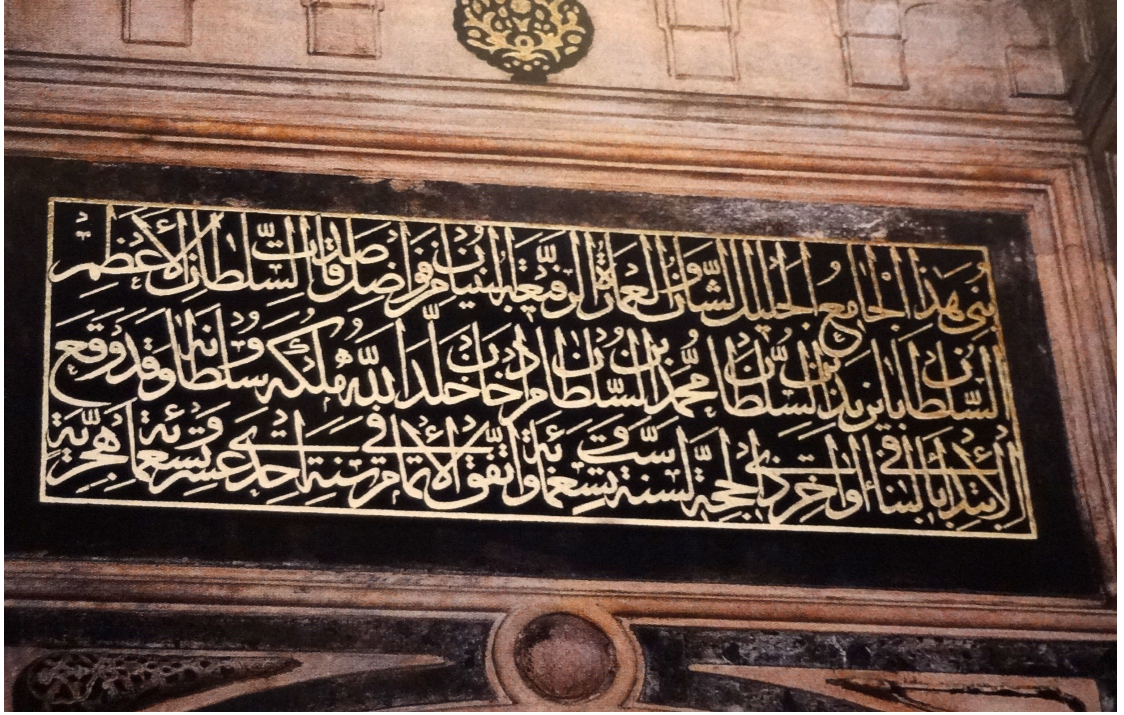 بنى هذا الجامع الجليل الشان والعمارة الرفيعة البنيان من فواضل صدقات السلطان الأعظم
السلطان بايزيد بن السلطان محمد بن السلطان مراد خان خلد الله ملكه وسلطانه وقد وقع
الابتداء بالبناء في أواخر ذي الحجة لسنة ست وتسعمائة واتفق الأتمام في سنة احدى عشر وتسعمائة هجرية